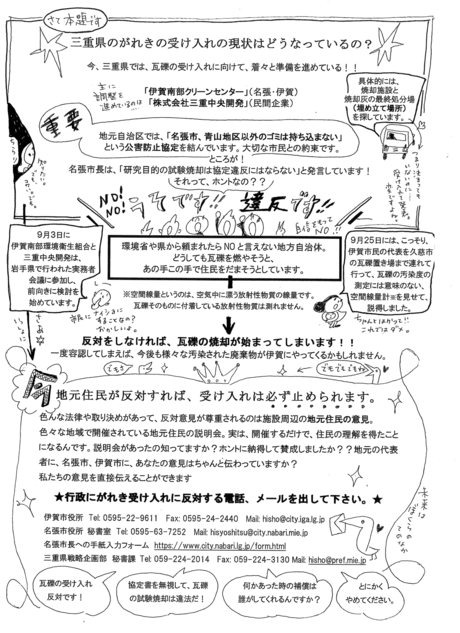 さて本題です
三重県のがれきの受け入れの現状はどうなっているの？
今、三重県では、瓦礫の受け入れに向けて、着々と準備を進めている！！
主に調整を進めているのは
「伊賀南部クリーンセンター」(名張・伊賀)
「株式会社三重中央開発」(民間企業)
具体的には、
焼却施設と
焼却灰の最終処分場
(埋め立て場所)
を探しています。
重要
地元自治区では、「名張市、青山地区以外のゴミは持ち込まない」
という公害防止協定を結んでいます。大切な市民との約束です。
ところが！
名張市長は、「研究目的の試験焼却は協定違反にはならない」と発言しています！
それって、ホントなの？？
NO!
NO!
うそです!! 違反です!!
9月3日に
伊賀南部環境衛生組合と
三重中央開発は、
岩手県で行われた実務者
会議に参加し、
前向きに検討を
始めています。
環境省や県から頼まれたらNOと言えない地方自治体。
どうしても瓦礫を燃やそうと、
あの手この手で住民をだまそうとしています。
9月25日には、こっそり、
伊賀市民の代表を久慈市
の瓦礫置き場まで連れて
行って、瓦礫の汚染度の
測定には意味のない、
空間線量計※を見せて、
説得しました。
※空間線量というのは、空気中に漂う放射性物質の線量です。
瓦礫そのものに付着している放射性物質は測れません。
市民にナイショにすることなの？
おかしいよ。
ちゃんとはかって!!
これではダメ。
反対をしなければ、瓦礫の焼却が始まってしまいます！！
一度容認してしまえば、今後も様々な汚染された廃棄物が伊賀にやってくるかもしれません。
でもさ
でもでもでもね
地元住民が反対すれば、受け入れは必ず止められます。
色んな法律や取り決めがあって、反対意見が尊重されるのは施設周辺の地元住民の意見。
色々な地域で開催されている地元住民の説明会。実は、開催するだけで、住民の理解を得たこと
になるんです。説明会があったの知ってますか？ホントに納得して賛成しましたか？？地元の代表
者に、名張市、伊賀市に、あなたの意見はちゃんと伝わっていますか？
私たちの意見を直接伝えることができます
★行政にがれき受け入れに反対する電話、メールを出して下さい。★
伊賀市役所 Tel: 0595-22-9611 Fax: 0595-24-2440 Mail: hisho@city.iga.lg.jp
名張市役所 秘書室 Tel: 0595-63-7252 Mail: hisyoshitsu@city.nabari.mie.jp
名張市長への手紙入力フォーム https://www.city.nabari.lg.jp/form.html
三重県戦略企画部 秘書課 Tel: 059-224-2014 Fax: 059-224-3130 Mail: hisho@pref.mie.jp
未来はぼくらのてのなか
瓦礫の受け入れ
反対です！
協定書を無視して、瓦礫
の試験焼却は違法だ！
何かあった時の補償は
誰がしてくれるんですか？
とにかく
やめてください。